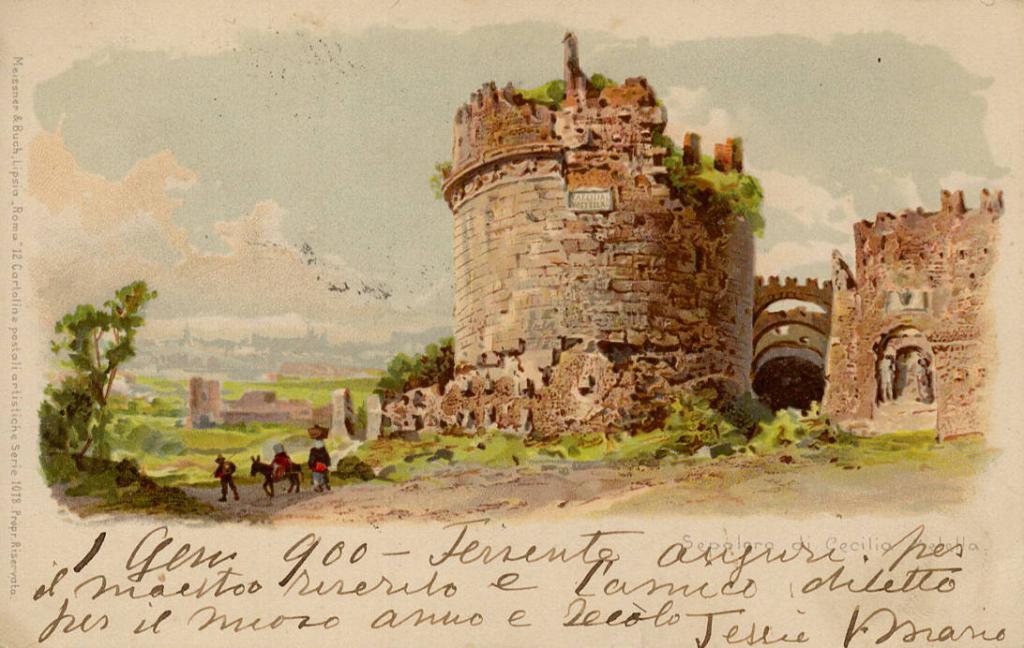 Meissner & Buch, Lipsia „Roma" 12 Cartoline postali artistiche Serie 1018 Propr. Riservata.
CÆCILIA
METELLA
Sepolcro di Cecilia Metella
1 Gen 900 – Fervente auguri per
il maestro riverito e l'amico diletto
per il nuovo anno e secolo Jessie V Mario